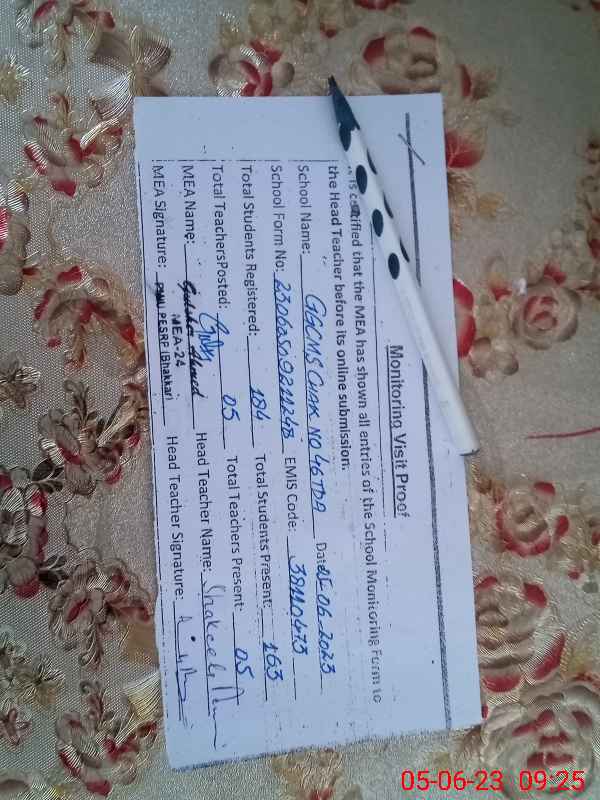 Monitoring Visit Proof
is certified that the MEA has shown all entries of the School Monitoring Form to
the Head Teacher before its online submission.
School Name: GGCMS CHAK NO 46 TDA Date 05.06.2023
School Form No: EMIS Code: 38110473
Total Students Registered: 184 Total Students Present: 163
Total Teachers Posted: 05 Total Teachers Present: 05
MEA Name: Ahmad Head Teacher Name: Shakeela
MEA-24
MEA Signature: PMU PESRP (Bhakkar) Head Teacher Signature:
05-06-23 09:25